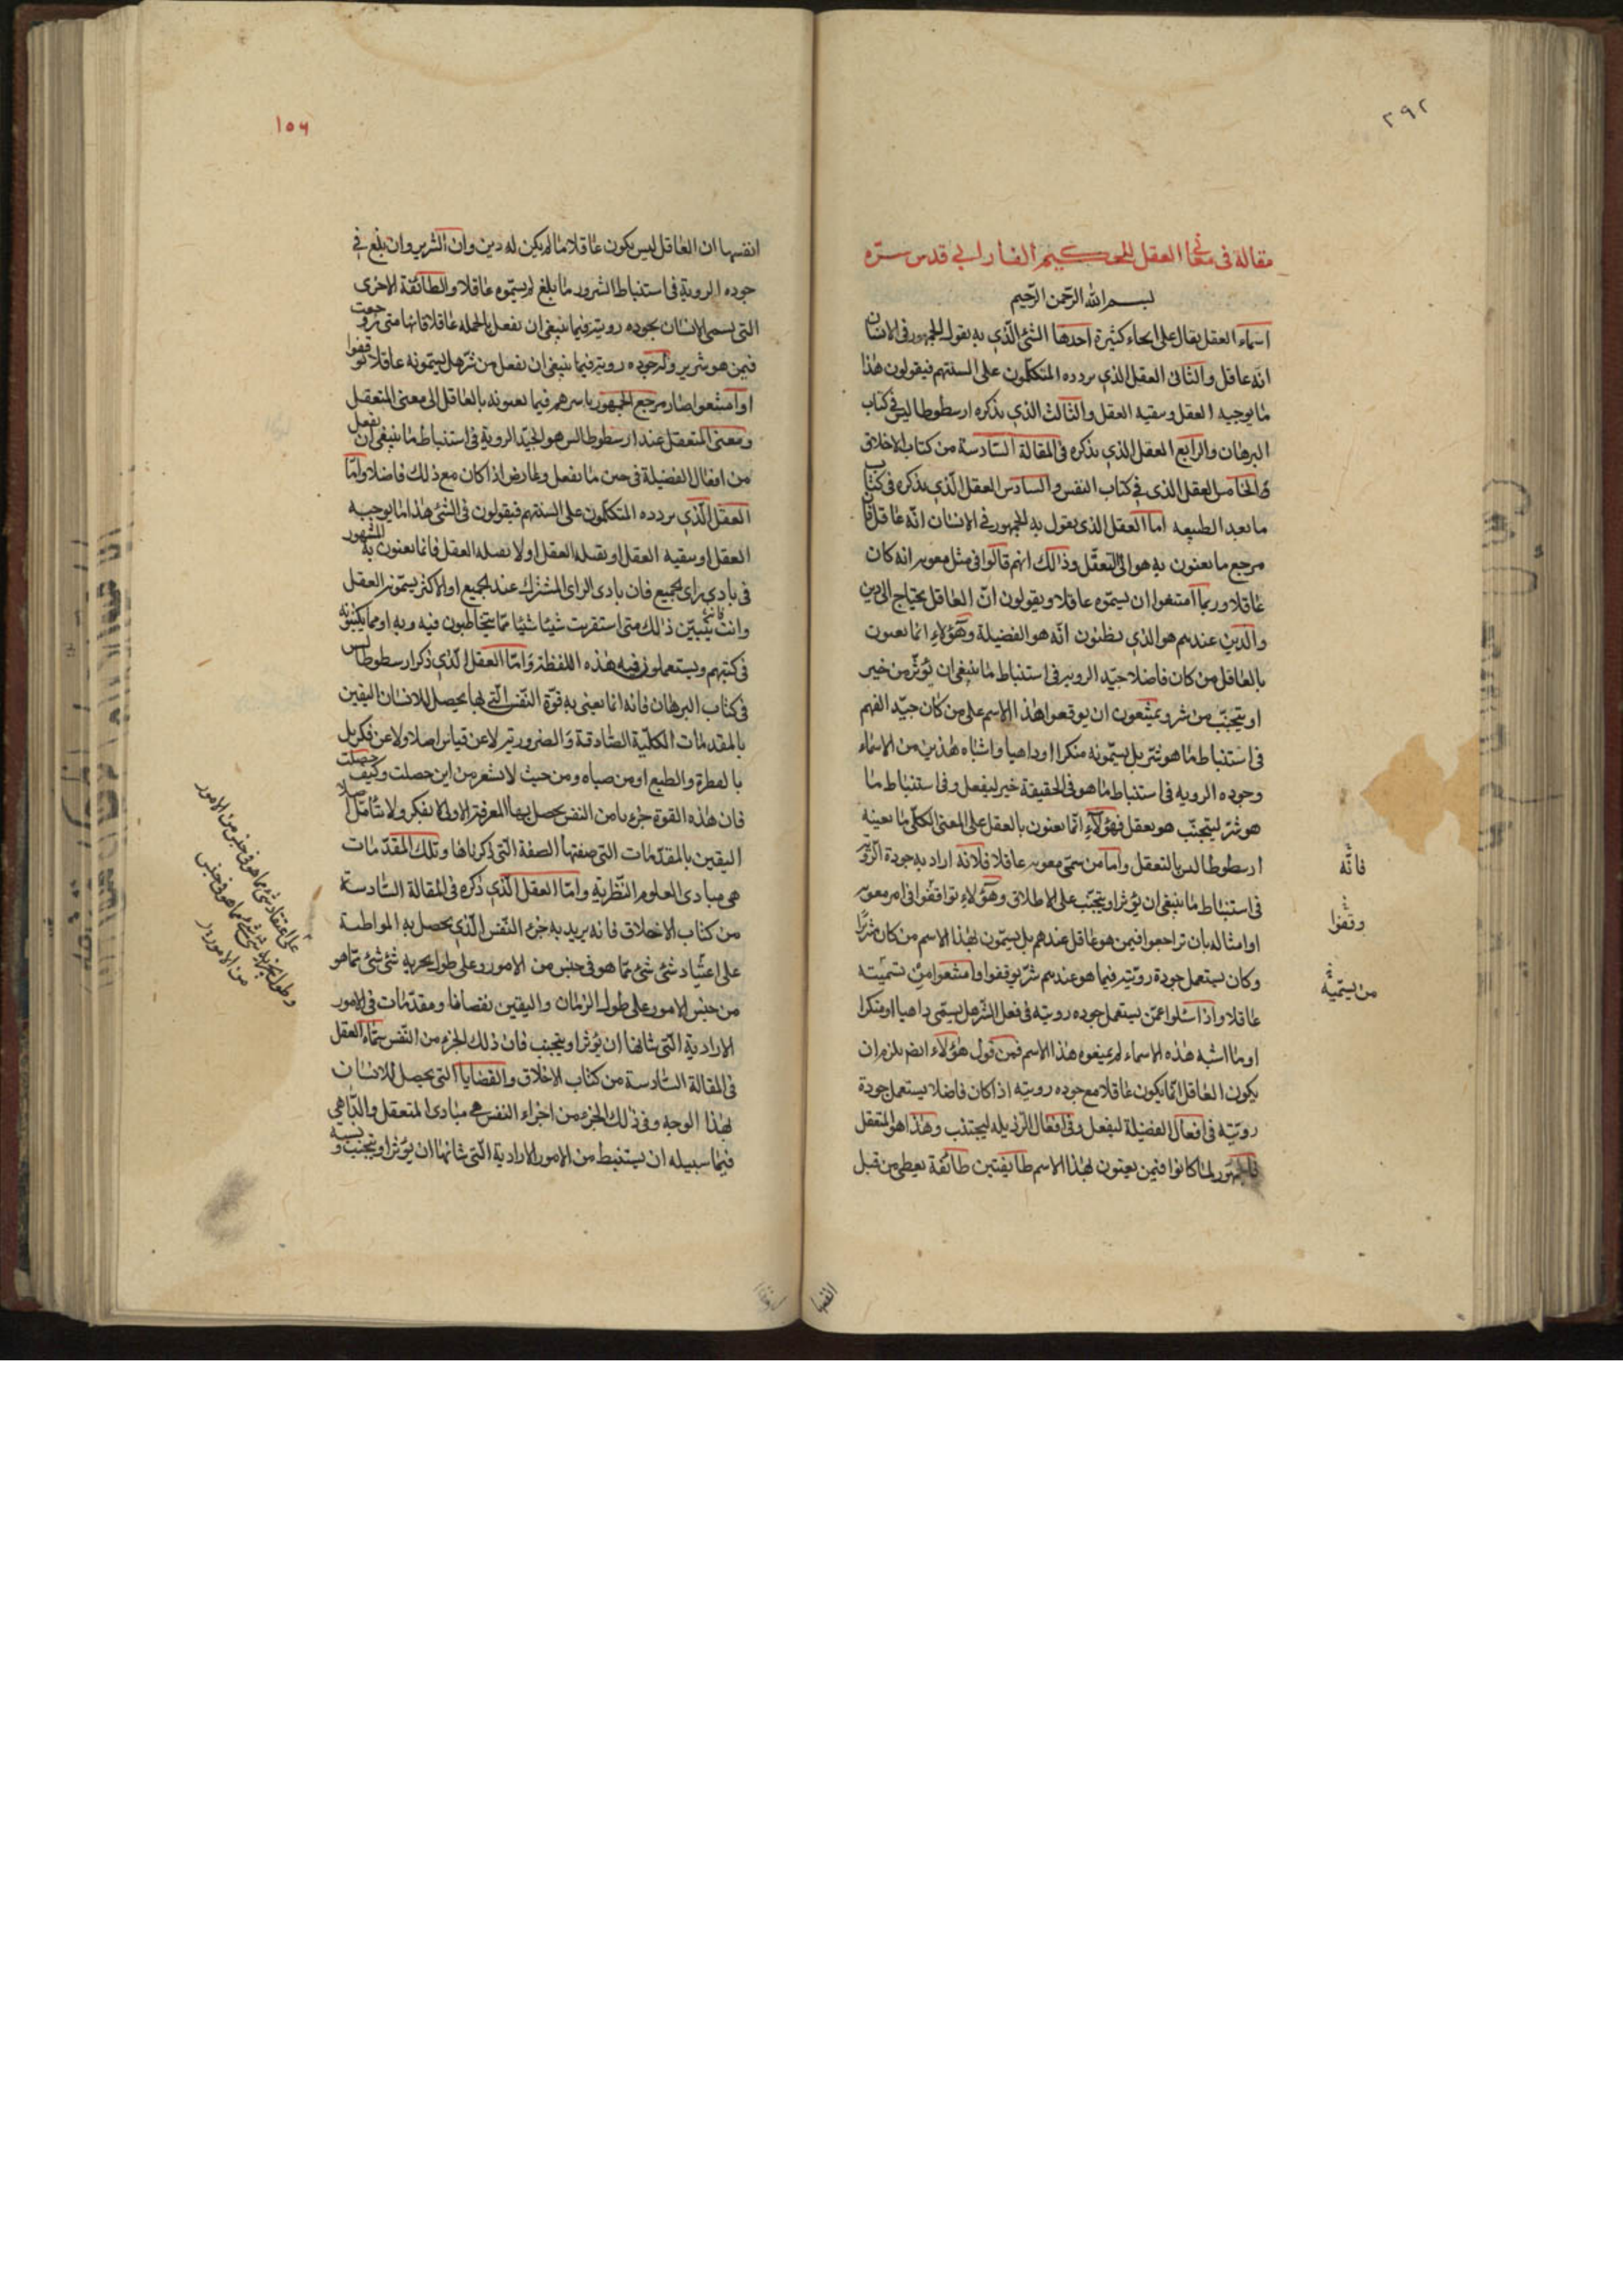 ٢٩٢
مقالة فى معانى العقل للحكيم الفارابى قدس سره
بسم الله الرحمن الرحيم
اسماء العقل يقال على انحاء كثيرة احدها الشئ الذى به يقول الجمهور فى الانسان
انه عاقل والثانى العقل الذى يردده المتكلمون على السنتهم فيقولون هذا
ما يوجبه العقل وينفيه العقل والثالث الذى يذكره ارسطوطاليس فى كتاب
البرهان والرابع العقل الذى يذكره فى المقالة السادسة من كتاب الاخلاق
والخامس العقل الذى فى كتاب النفس والسادس العقل الذى يذكره فى كتاب
ما بعد الطبيعه اما العقل الذى يقول به الجمهور فى الانسان انه عاقل فان
مرجع ما يعنون به هو الى التعقل وذلك انهم قالوا فى مثل معويه انه كان
عاقلا وربما امتنعوا ان يسموه عاقلا ويقولون ان العاقل يحتاج الى دين
والدين عندهم هو الذى يظنون انه هو الفضيلة وهؤلاء انما يعنون
بالعاقل من كان فاضلا جيد الرويه فى استنباط ما ينبغى ان يؤثر من خير
او يتجنب من شر ويمتنعون ان يوقعوا هذا الاسم على من كان جيد الفهم
فى استنباط ما هو شر بل يسمونه منكرا او داهيا واشباه هذين من الاسماء
وجوده الرويه فى استنباط ما هو فى الحقيقة خير ليفعل وفى استنباط ما
هو شر ليتجنب هو يعقل فهؤلاء انما يعنون بالعقل على المعنى الكلى ما يعنيه
ارسطوطالس بالتعقل واما من سمى معويه عاقلا فلانه اراد به جودة الروية
فى استنباط ما ينبغى ان يؤثر او يتجنب على الاطلاق وهؤلاء توافقوا فى امر معويه
او امثاله بان تراجعوا فيمن هو عاقل عندهم بل يسمون بهذا الاسم من كان شريرا
وكان يستعمل جودة رويته فيما هو عندهم شر توقفوا وامتنعوا من تسميته
عاقلا واذا سئلوا عمن يستعمل جوده رويته فى فعل الشر هل يسمى داهيا او منكرا
او ما اشبه هذه الاسماء لم يمنعوه هذا الاسم فمن قول هؤلاء ايضا يلزم ان
يكون العاقل انما يكون عاقلا مع جوده رويته اذا كان فاضلا يستعمل جودة
رويته فى افعال الفضيلة ليفعل وفى افعال الرذيله ليجتنب وهذا هو المتعقل
فالجمهور لما كانوا فيمن يعنون بهذا الاسم طايفتين طائفة يعطى من قبل
فانه
وقفوا
من يسميه
انفسها
١٥٦
انفسها ان العاقل ليس يكون عاقلا ما لم يكن له دين وان الشرير وان بلغ فى
جوده الروية فى استنباط الشرور ما بلغ لم يسموه عاقلا والطائفة الاخرى
التى يسمى الانسان بجوده رويته فيما ينبغى ان يفعل بالجمله عاقلا فانها متى روجعت
فيمن هو شرير وله جوده روية فيما ينبغى ان يفعل من شر هل يسمونه عاقلا توقفوا
او امتنعوا صار مرجع الجمهور باسرهم فيما يعنونه بالعاقل الى معنى المتعقل
ومعنى المتعقل عند ارسطوطالس هو الجيد الروية فى استنباط ما ينبغى ان يفعل
من افعال الفضيلة فى حين ما يفعل وعارض اذا كان مع ذلك فاضلا واما
العقل الذى يردده المتكلمون على السنتهم فيقولون فى الشئ هذا ما يوجبه
العقل او ينفيه العقل او يقبله العقل او لا يقبله العقل فانما يعنون به المشهور
فى بادى راى الجميع فان بادى الراى المشترك عند الجميع او الاكثر يسمونه العقل
وانت تتبين ذلك متى استقريت شيئا شيئا مما يتخاطبون فيه وبه او مما يكتبونه
فى كتبهم ويستعملون فيه هذه اللفظة واما العقل الذى ذكر ارسطوطاليس
فى كتاب البرهان فانه انما يعنى به قوة النفس التى بها يحصل للانسان اليقين
بالمقدمات الكلية الصادقة والضرورية لا عن قياس اصلا ولا عن فكر بل
بالفطرة والطبع او من صباه ومن حيث لا يشعر من اين حصلت وكيف حصلت
فان هذه القوة جزء ما من النفس يحصل بها المعرفة الاولى لا بفكر ولا بتأمل اصلا
اليقين بالمقدمات التى صفتها الصفة التى ذكرناها وتلك المقدمات
هى مبادى العلوم النظرية واما العقل الذى ذكره فى المقالة السادسة
من كتاب الاخلاق فانه يريد به جزء النفس الذى يحصل به المواظبة
على اعتياد شئ شئ مما هو فى جنس من الامور وعلى طول تجربة شئ شئ مما هو
من جنس الامور على طول الزمان واليقين بقضايا ومقدمات فى الامور
الارادية التى شانها ان يؤثر او يتجنب فان ذلك الجزء من النفس سماه العقل
فى المقالة السادسة من كتاب الاخلاق والقضايا التى يحصل للانسان
بهذا الوجه وفى ذلك الجزء من اجزاء النفس هى مبادى المتعقل والداهى
فيما سبيله ان يستنبط من الامور الارادية التى شانها ان يؤثر او يتجنب و
على اعتقاد شئ مما هو فى جنس من الامور
وطول تجربة شئ شئ مما هو فى جنس
من الامور